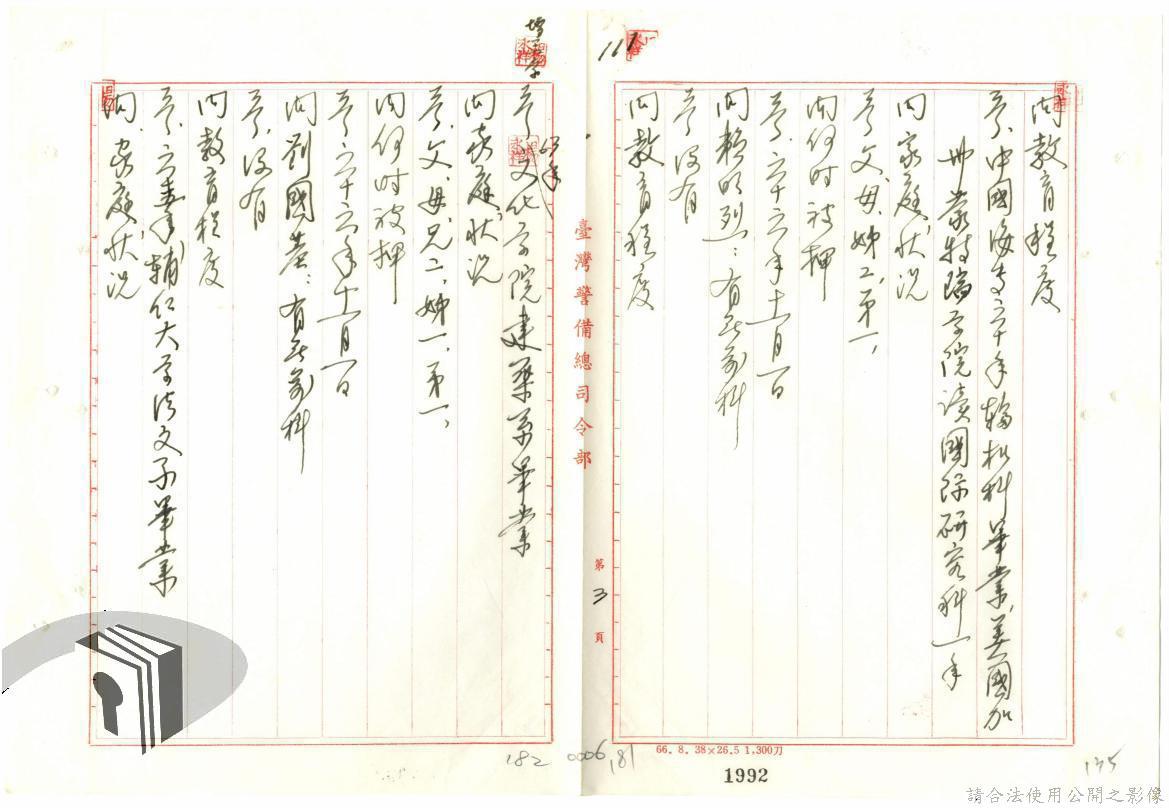 問教育程度
答、中國海專六十年輪機科畢業、美國加
州蒙特瑞學院讀國際研究科一年
問家庭狀況
答父、母、姊二、弟一、
問何時被押
答、六十六年十一月一日
問賴明烈：有無前科
答沒有
問教育程度
臺灣警備總司令部
第3頁
答文化學院建築系畢業
問家庭狀況
答、父、母、兄二、姊一、弟一、
問何時被押
答、六十六年十一月一日
問劉國基：有無前科
答、沒有
問教育程度
答、六 年輔仁大學法文系畢業
問、家庭狀況
182
0006
181
175
66. 8. 38×26.5 1,300刀
1992
請合法使用公開之影像